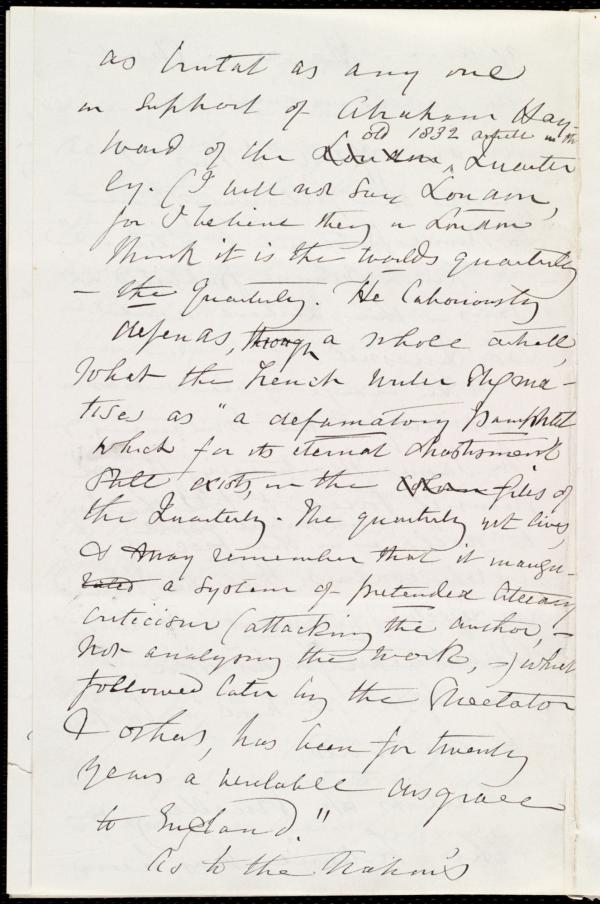 as brutal as any one
in support of Abraham Hay-
old 1832 article in the
ward of the London Quarter
ly. (I will not say London,
for I believe they in London
think it is the worlds quarterly
— the Quarterly. He laboriously
defends, through a whole article,
What the French writer Stigma-
tises as "a defamatory pamphlet
which for its eternal chastisment
still exists, in the files of
the Quarterly. The quarterly yet lives,
& may remember that it inaugu-
rated a system of pretended literary
criticism (attacking the author, —
not analysing the work, —) which
followed later by the Spectator
& others, has been for twenty
years a veritable disgrace
to England."
As to the Nation's